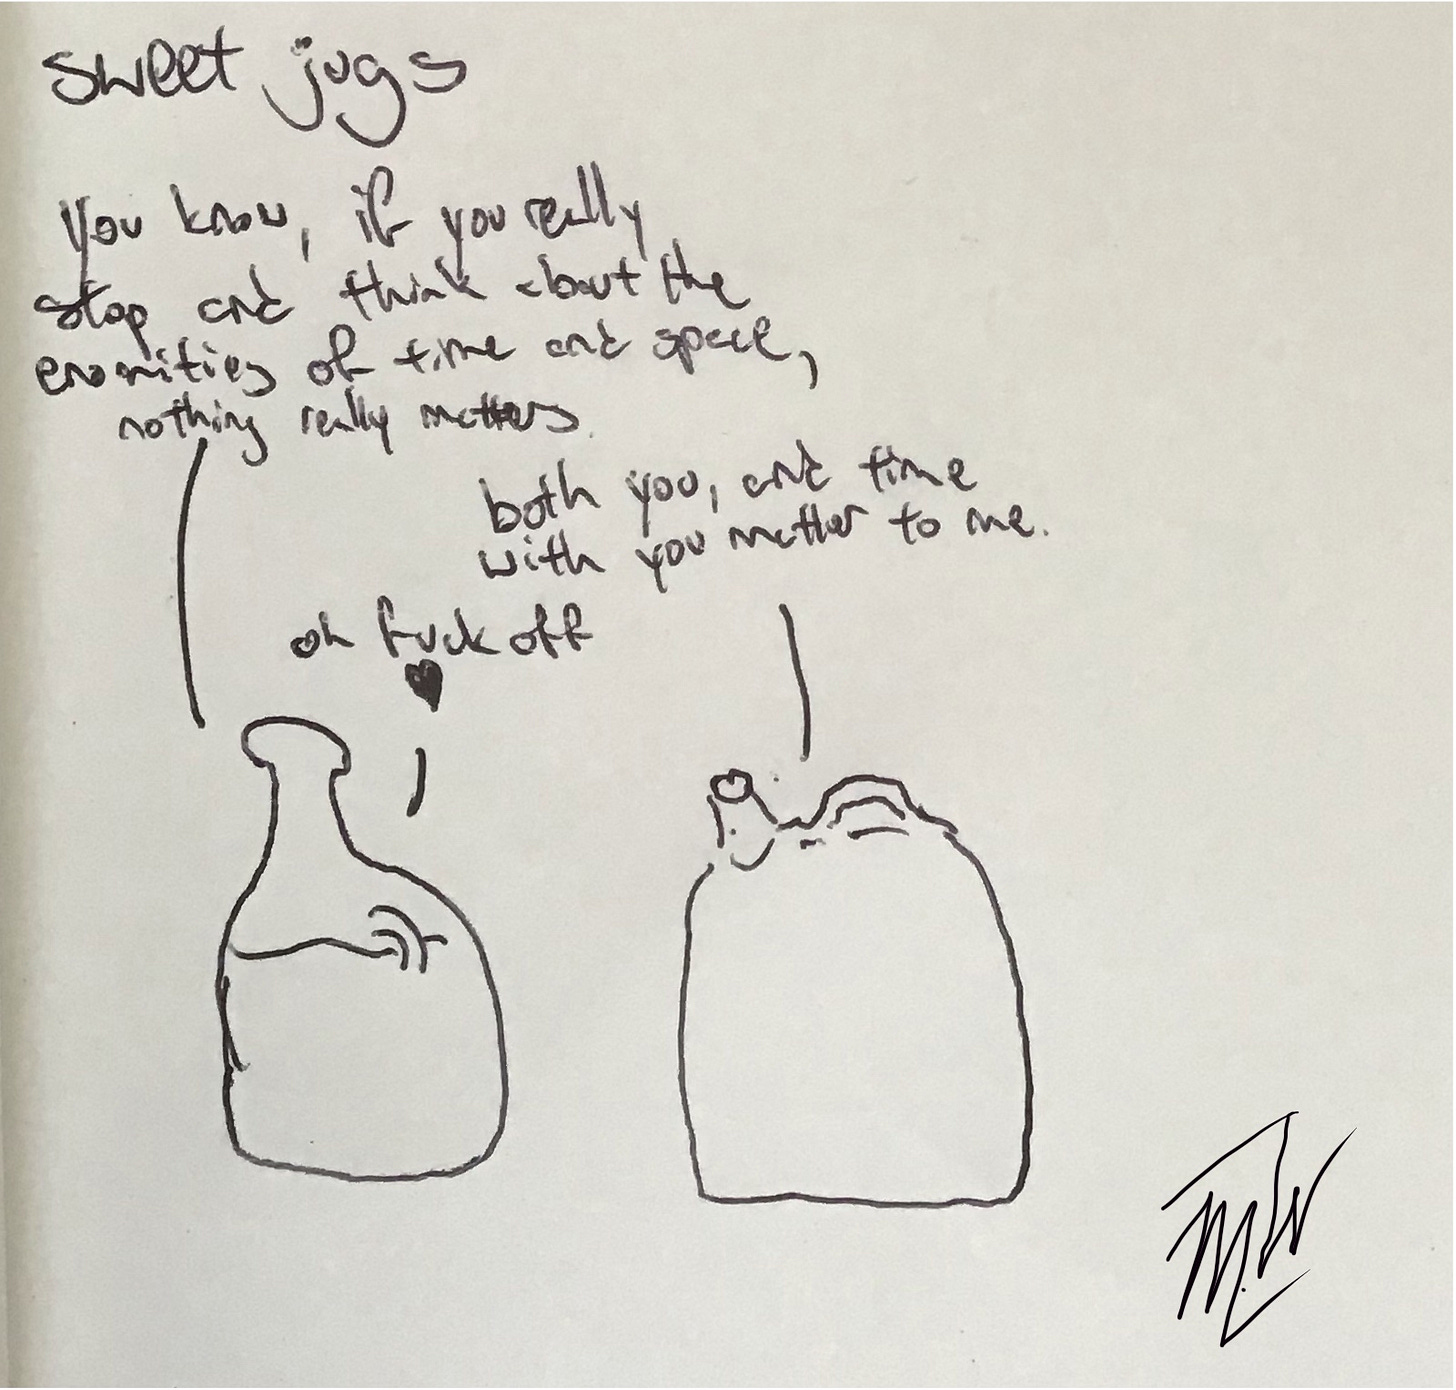 sweet jugs
you know, if you really
stop and think about the
enormities of time and space,
nothing really matters.
both you, and time
with you matter to me.
oh fuck off
♥